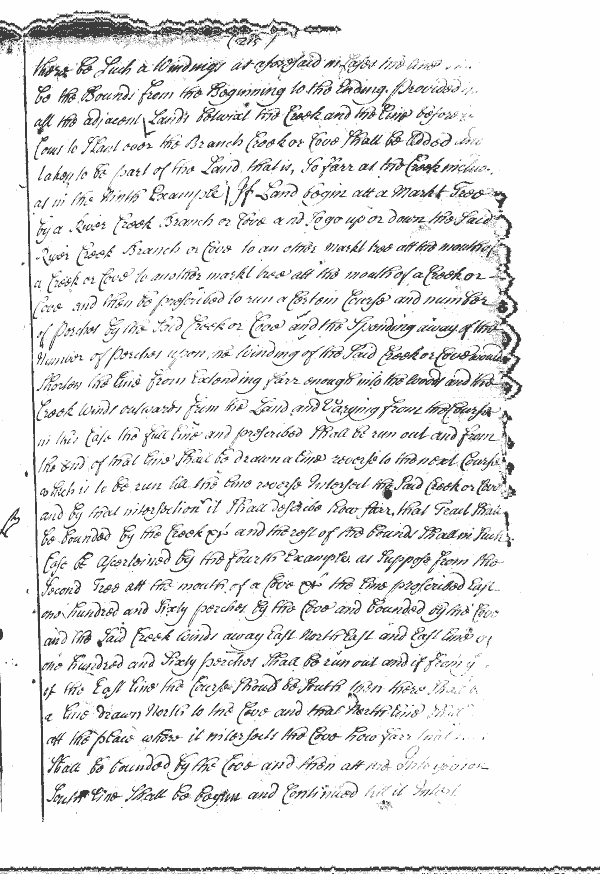 (215)
there be Such a Windings at aforesaid in Cases the line
be the Bounds from the Beginning to the Ending, Provided
all the adjacent Lands betwixt the Creek and the Line before
Cous to Slant over the Branch Creek or Cove Shall be added and
taken to be part of the Land, that is, So farr as the Creek
as in the Ninth Example If Land begin att a Markt Tree
by a River Creek Branch or Cove and So go up or down the Said
River Creek Branch or Cove to an other markt tree att the mouth of
a Creek or Cove to another markt tree att the mouth of a Creek or
Cove and then be prescribed to run a Certein Course and number
of perches by the Said Creek or Cove and the Spending away of the
Number of perches upon the Winding of the Said Creek or Cove would
Shorten the Line from Extending farr enough into the Woods and the
Creek Winds outwards from the Land and Varying from the Course
in this Case the full Line and prescribed Shall be run out and from
the End of that Line Shall be drawn a Line reverse to the next Course
which is to be run till the Line reverse Intersect the Said Creek or Cove
and by that intersection it Shall describe how farr, that Tract Shall
be bounded by the Creek &c and the rest of the bounds Shall in Such
Case be ascertained by the fourth Example as Suppose from the
Second Tree att the mouth of a Cove &c the Line prescribed East
one hundred and Sixty perches by the Cove and bounded by the Cove
and the Said Creek winds away East North East and East Line of
one hundred and Sixty perches Shall be run out and if from y
of the East Line the Course Should be South then there Shall be
a Line drawn North to the Cove and that North Line
att the place where it intersects the Cove how farr that
Shall be bounded by the Cove and then att the
South Line Shall be begun and Continued till it Intersect